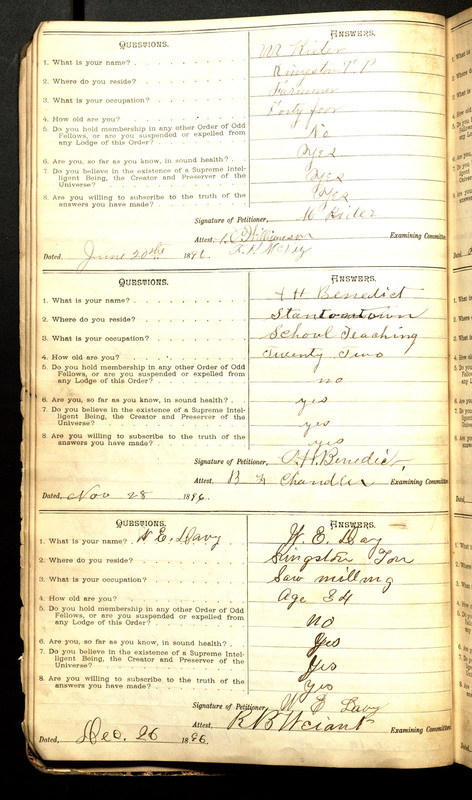 QUESTIONS. ANSWERS.
1. What is your name? M Rieler
2. Where do you reside? Kingston T P
3. What is your occupation? Farmmer
4. How old are you? Forty four
5. Do you hold membership in any other Order of Odd
Fellows, or are you suspended or expelled from
any Lodge of this Order? No
6. Are you, so far as you know, in sound health? Yes
7. Do you believe in the existence of a Supreme Intel-
ligent Being, the Creator and Preserver of the
Universe? Yes
8. Are you willing to subscribe to the truth of the
answers you have made? Yes
Signature of Petitioner, M Rieler
Attest, Examining Committee
Dated, June 20th 189
QUESTIONS. ANSWERS.
1. What is your name? H Benedict
2. Where do you reside? Stantontown
3. What is your occupation? School Teaching
4. How old are you? Twenty Two
5. Do you hold membership in any other Order of Odd
Fellows, or are you suspended or expelled from
any Lodge of this Order? no
6. Are you, so far as you know, in sound health? yes
7. Do you believe in the existence of a Supreme Intel-
ligent Being, the Creator and Preserver of the
Universe? yes
8. Are you willing to subscribe to the truth of the
answers you have made? yes
Signature of Petitioner, H. Benedict,
Attest, Chandler Examining Committee
Dated, Nov 28 1896.
QUESTIONS. ANSWERS.
1. What is your name? W E. Davy W. E. Davy
2. Where do you reside? Kingston Ton
3. What is your occupation? Saw milling
4. How old are you? Age 34
5. Do you hold membership in any other Order of Odd
Fellows, or are you suspended or expelled from
any Lodge of this Order? No
6. Are you, so far as you know, in sound health? Yes
7. Do you believe in the existence of a Supreme Intel-
ligent Being, the Creator and Preserver of the
Universe? Yes
8. Are you willing to subscribe to the truth of the
answers you have made? Yes
Signature of Petitioner, W E Davy
Attest, R B Weiant Examining Committee
Dated, Dec. 26 1896.